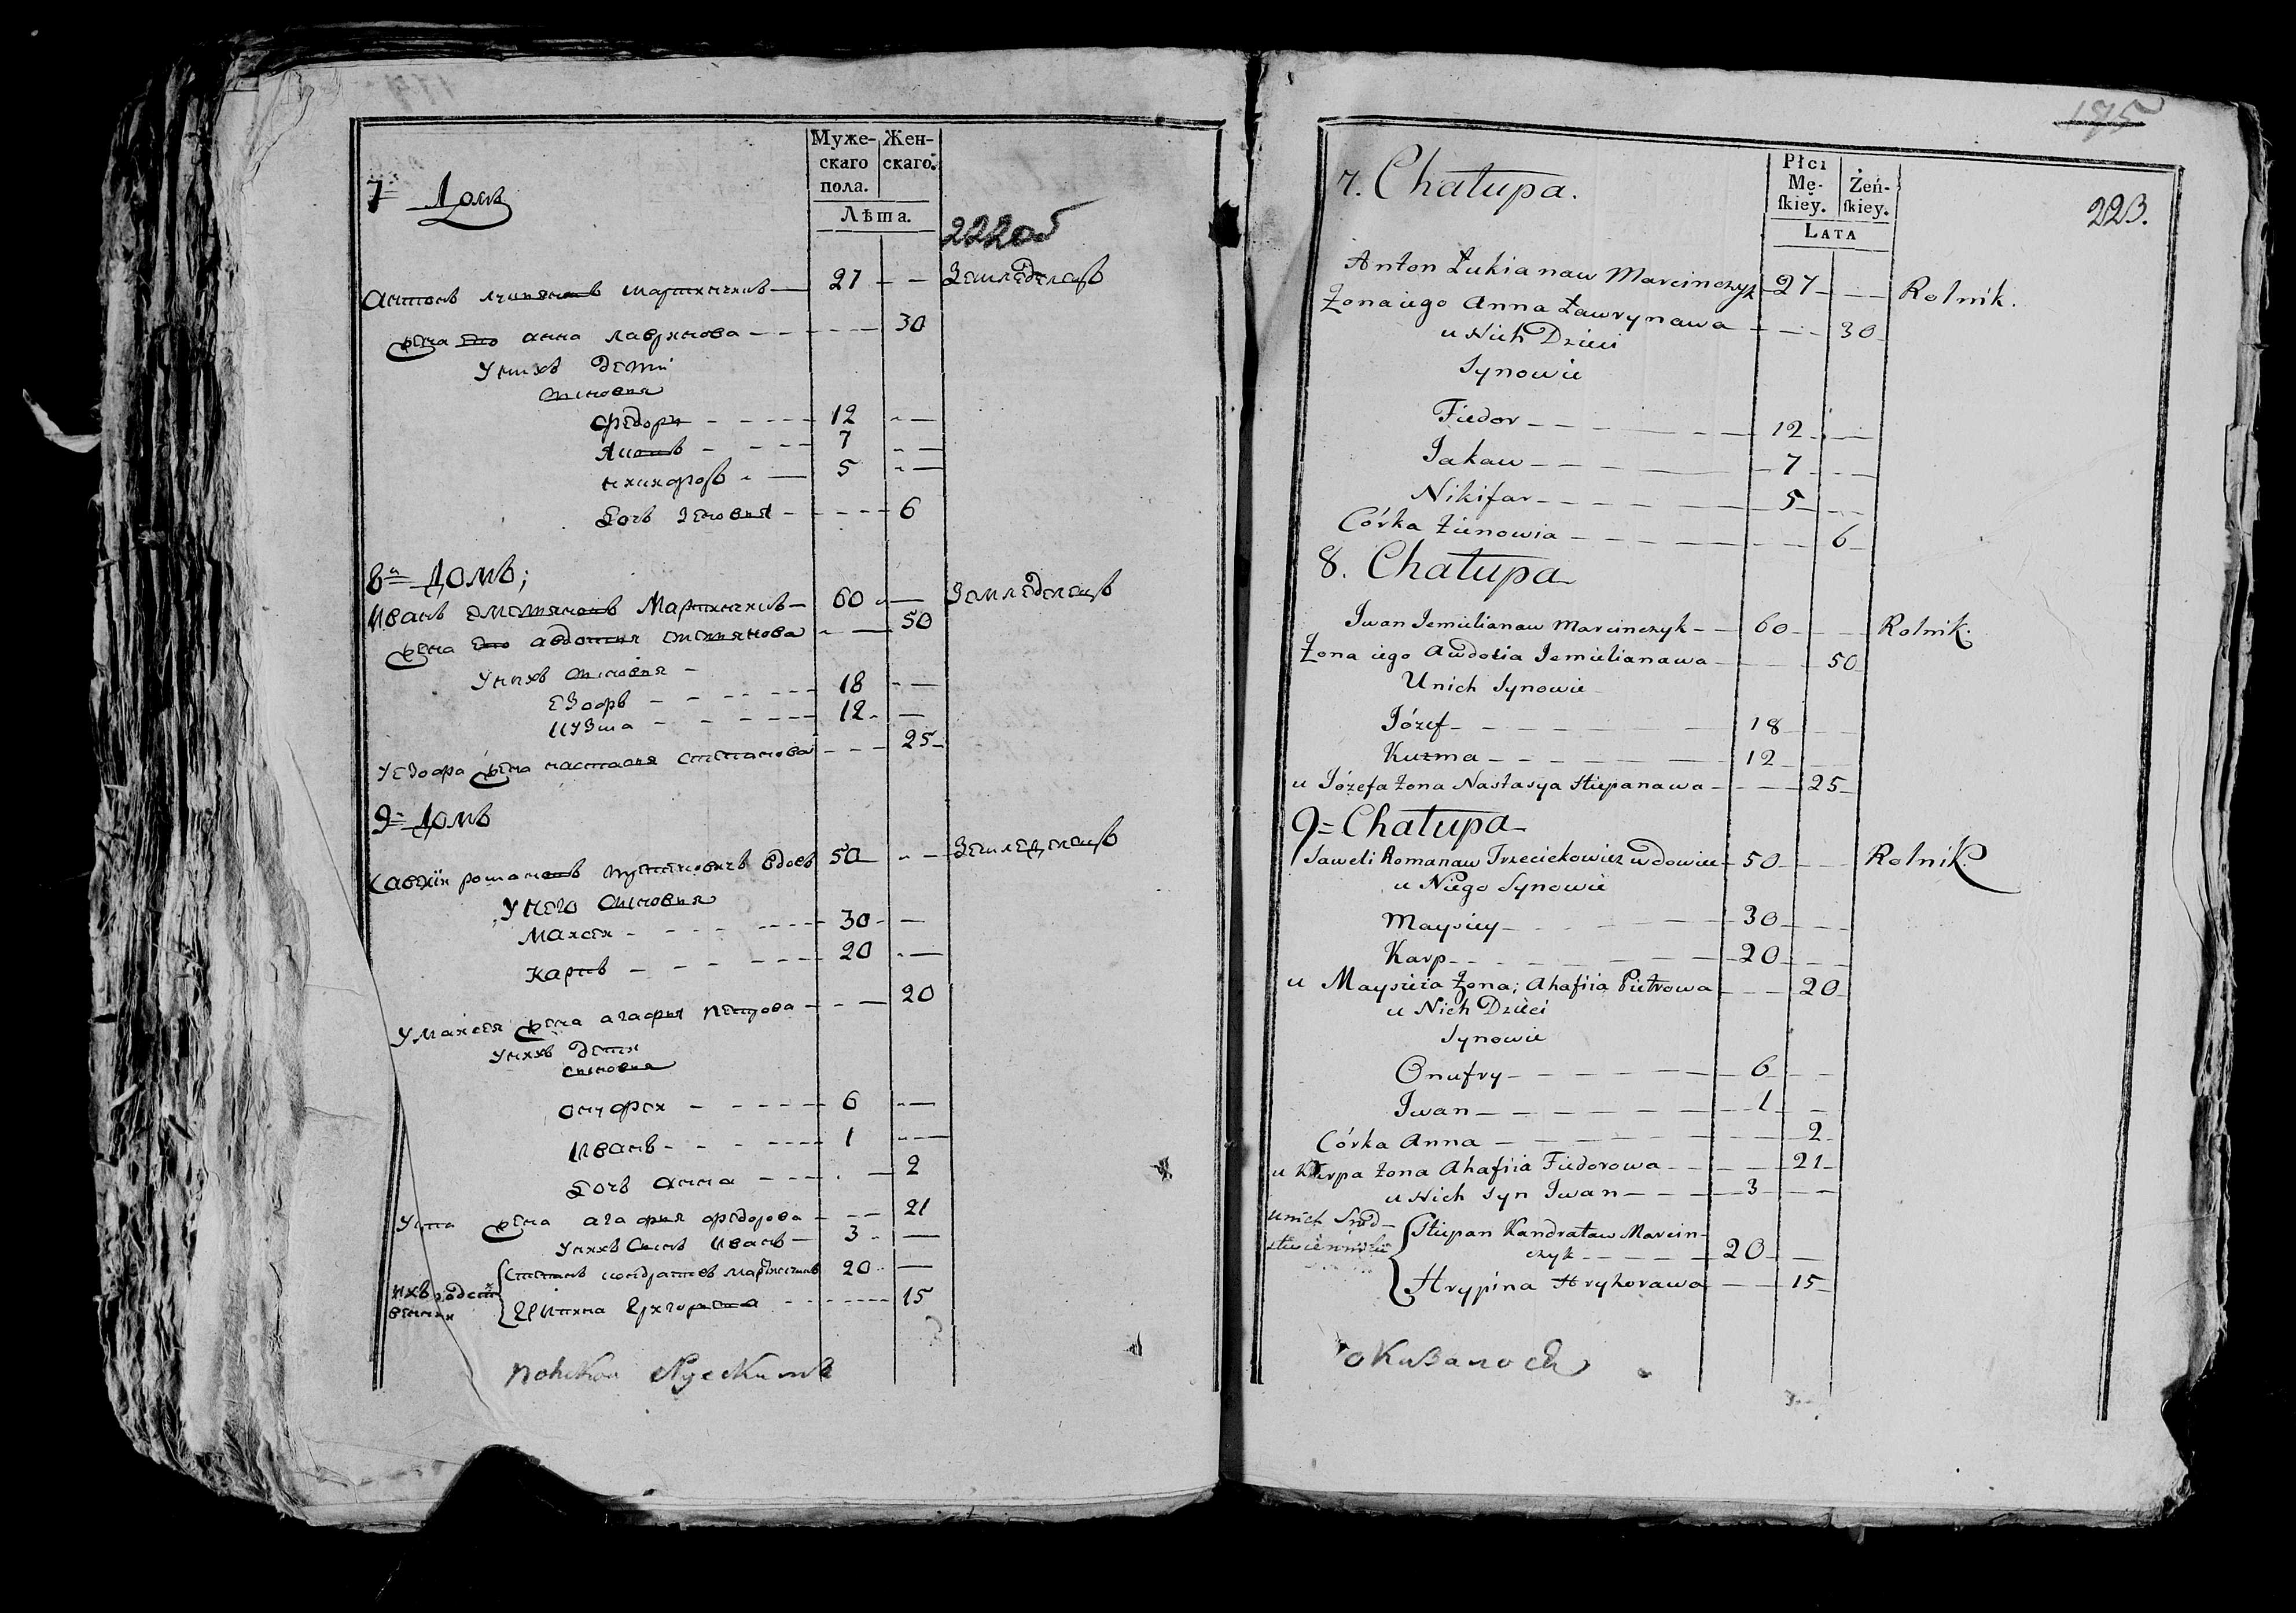 Муже-
скаго
пола.
Жен-
скаго.
Лѣта.
7 Домъ
222об
Антонъ Лукяновъ Мартинчикъ 27 Земледелецъ
жена его анна лавринова 30
У нихъ дети
сыновья
Федоръ 12
Яковъ 7
никифоръ 5
Дочь Зеновия 6
8й Домъ;
Иванъ емельяновъ Мартинчикъ 60 Земледелецъ
жена его авдотия емельянова 50
У нихъ сыновья
езофъ 18
кузма 12
У езофа жена настасья степанова 25
9 Домъ
Савели романовъ вдовъ 50 Земледелецъ
У него сыновья
Маисеи 30
карпъ 20
У Маисея жена агафья петрова 20
У нихъ дети
сыновья
онуфреи 6
Иванъ 1
Дочь анна 2
жена агафья федорова 21
У нихъ сынъ Иванъ 3
ихъ родст
венники
Степанъ кондратовъ мартинчикъ 20
Грипина Григорьева 15
175
223.
Płci
Mę-
ſkiey.
Żeń-
ſkiey.
LATA
7. Chałupa.
Anton Łukianaw Marcinczyk 27 Rolnik.
Żona iego Anna Ławrynawa 30
u Nich Dzieci
Synowie
Fiedor 12
Jakaw 7
Nikifar 5
Córka Zienowia 6
8. Chałupa
Iwan Jemielianaw Marcinczyk 60 Rolnik.
Żona iego Awdotia Jemielianawa 50
U nich Synowie
Józef 18
Kuzma 12
u Józefa Żona Nastasya Stiepanawa 25
9 = Chałupa
Saweli Romanaw Trzeciekowicz wdowiec 50 Rolnik
u Niego Synowie
Maysiey 30
Karp 20
u Maysieia Żona; Ahafiia Pietrowa 20
u Nich Dzieci
Synowie
Onufry 6
Iwan 1
Córka Anna 2
u Karpa Żona Ahafiia Fiedorowa 21
u Nich Syn Iwan 3
u nich
Stiepan Kandrataw Marcin-
czyk 20
Hrypina Hryhorawa 15